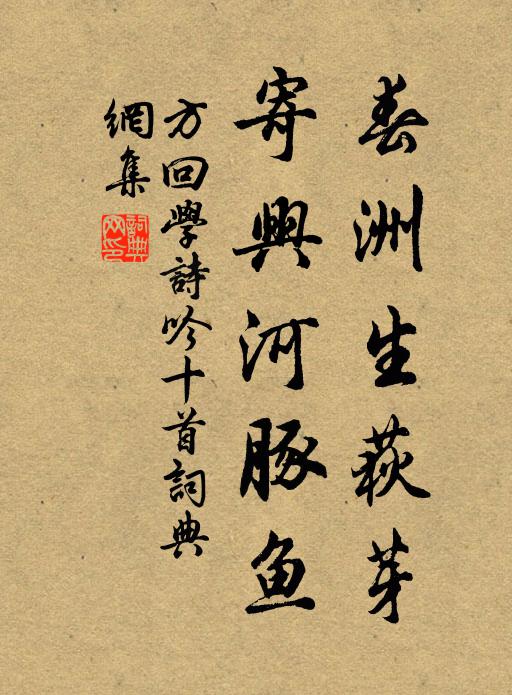 春洲生荻芽
寄興河豚鱼
方回學詩吟十首詞典
網集
詞典
网印